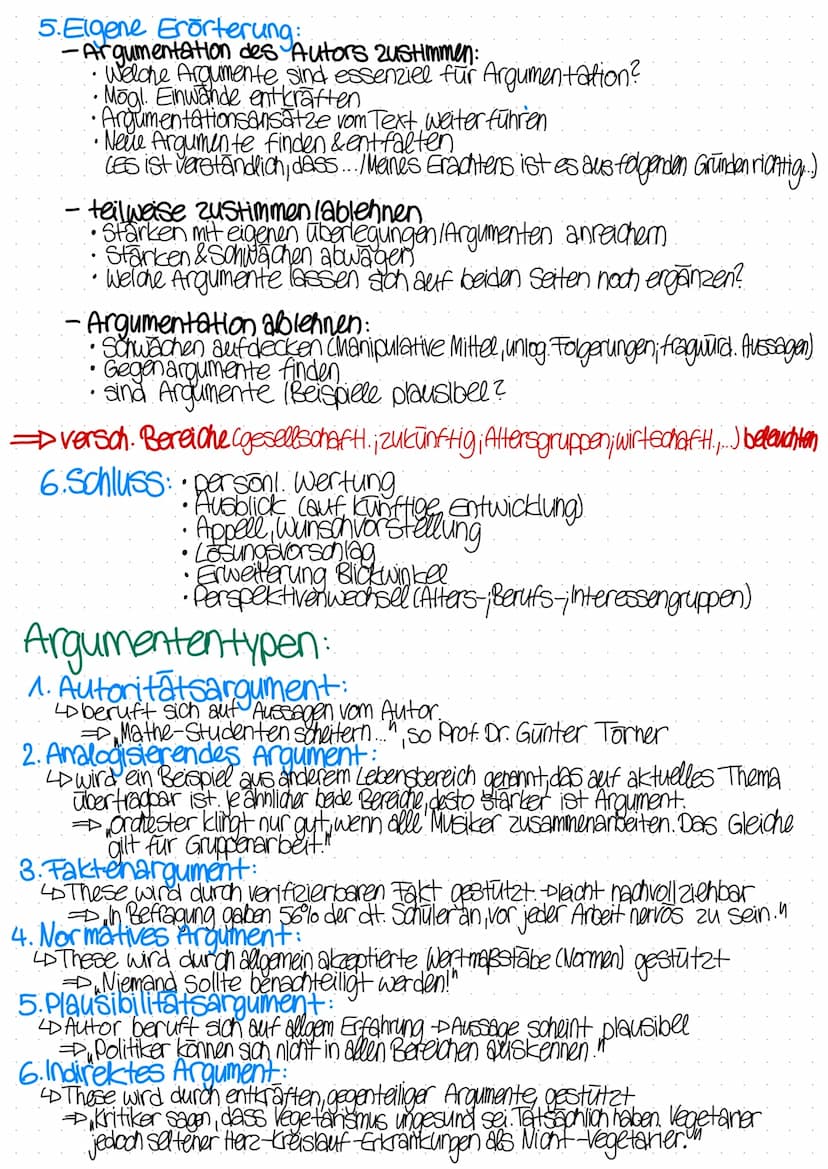 5. Eigene Erörterung:
– Argumentation des Autors zustimmen:
· Welche Argumente sind essenziel für Argumentation?
· Mögl. Einwände entkräften
· Argumentationsansätze vom Text weiterführen
· Neue Argumente finden & entfalten
(Es ist verständlich, dass ... / Meines Erachtens ist es aus folgenden Gründen richtig...)
– teilweise zustimmen/ablehnen
· Stärken mit eigenen Überlegungen/Argumenten anreichern
· Stärken & Schwächen abwägen
· Welche Argumente lassen sich auf beiden Seiten noch ergänzen?
– Argumentation ablehnen:
· Schwächen aufdecken (Manipulative Mittel, unlog. Folgerungen; fragwürd. Aussagen)
· Gegenargumente finden
· sind Argumente/Beispiele plausibel?
⇒ versch. Bereiche (gesellschaftl.; zukünftig; Altersgruppen; wirtschaftl., ...) beleuchten
6. Schluss: · persönl. Wertung
· Ausblick (auf künftige Entwicklung)
· Appell, Wunschvorstellung
· Lösungsvorschlag
· Erweiterung Blickwinkel
· Perspektivenwechsel (Alters-; Berufs-; Interessengruppen)
Argumententypen:
1. Autoritätsargument:
↳ beruft sich auf Aussagen vom Autor.
⇒ „Mathe-Studenten scheitern...", so Prof. Dr. Günter Törner
2. Analogisierendes Argument:
↳ wird ein Beispiel aus anderem Lebensbereich genannt, das auf aktuelles Thema
übertragbar ist. je ähnlicher beide Bereiche, desto stärker ist Argument.
⇒ „Orchester klingt nur gut, wenn alle Musiker zusammenarbeiten. Das Gleiche
gilt für Gruppenarbeit."
3. Faktenargument:
↳ These wird durch verifizierbaren Fakt gestützt. → leicht nachvollziehbar
⇒ „In Befragung gaben 56% der dt. Schüler an, vor jeder Arbeit nervös zu sein."
4. Normatives Argument:
↳ These wird durch allgemein akzeptierte Wertmaßstäbe (Normen) gestützt
⇒ „Niemand sollte benachteiligt werden!"
5. Plausibilitätsargument:
↳ Autor beruft sich auf allgem Erfahrung → Aussage scheint plausibel
⇒ „Politiker können sich nicht in allen Bereichen auskennen."
6. Indirektes Argument:
↳ These wird durch entkräften gegenteiliger Argumente gestützt
⇒ „Kritiker sagen, dass Vegetarismus ungesund sei. Tatsächlich haben Vegetarier
jedoch seltener Herz-Kreislauf-Erkrankungen als Nicht-Vegetarier."